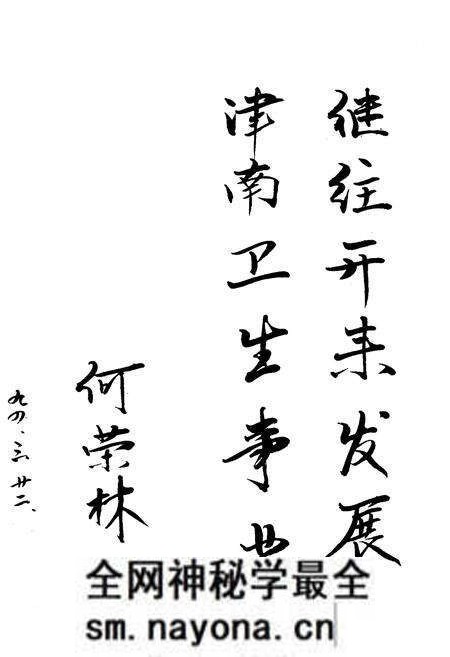 继往开来发展
津南卫生事
何荣林
九四.三.廿二.
全网神秘学最全
sm.nayona.cn